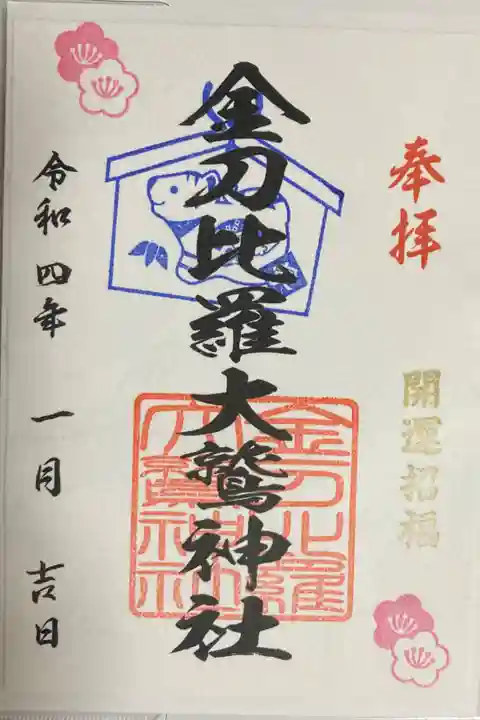 奉拝
開運招福
金刀比羅大鷲神社
金刀比羅大鷲神社
令和四年 一月 吉日